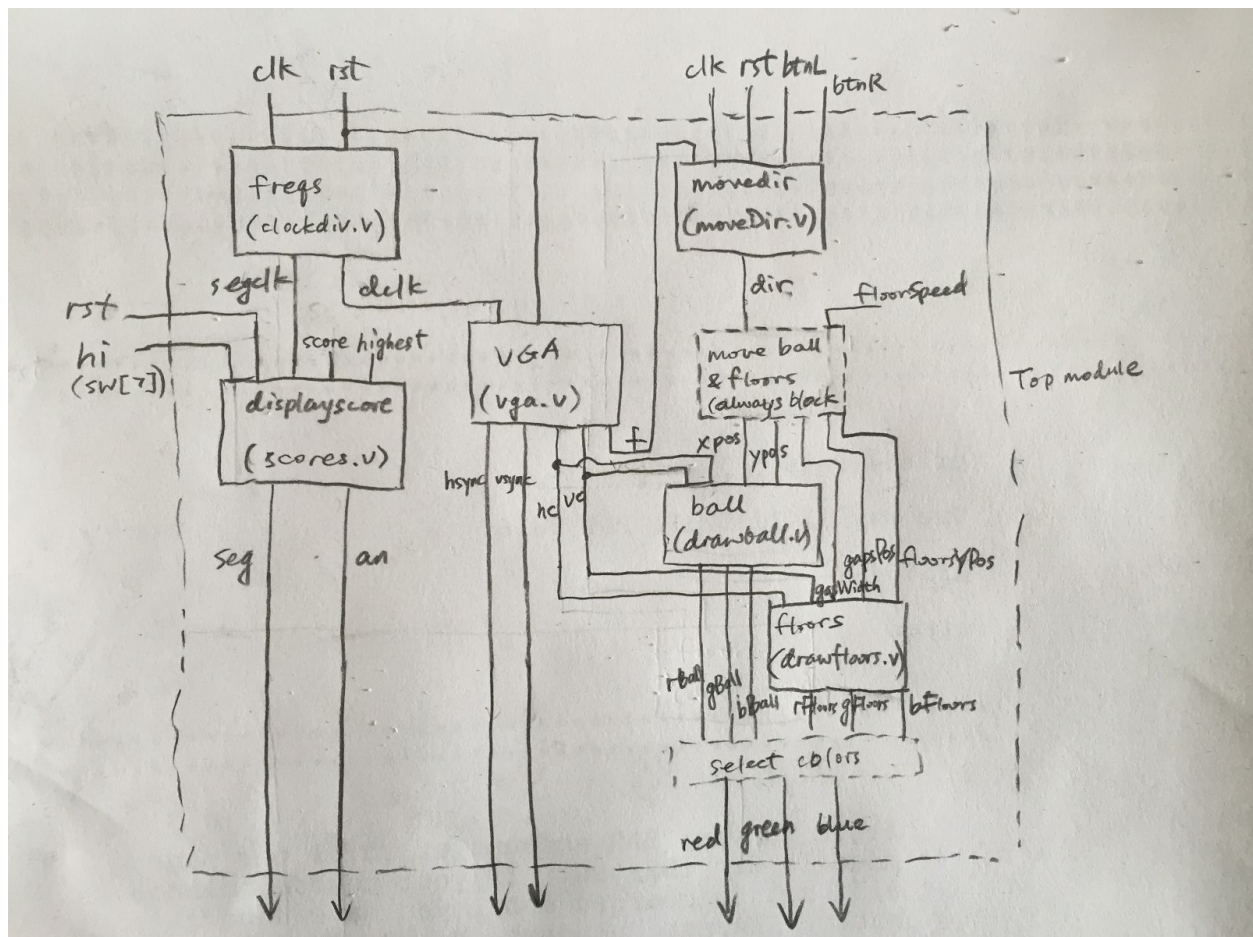 clk rst
clk rst btnL
btnR
freqs
(clockdiv.v)
movedir
(moveDir.v)
segclk
dclk
dir
floorSpeed
rst
hi
(SW[7])
score highest
displayscore
(scores.v)
VGA
(vga.v)
move ball
& floors
(always block
Top module
f
xpos
ypos
hsync
vsync
hc
vc
ball
(drawball.v)
seg
an
gapsPos
floorsYPos
gapWidth
floors
(drawfloors.v)
rBall
gBall
bBall
rFloors
gFloors
bFloors
select colors
red
green
blue